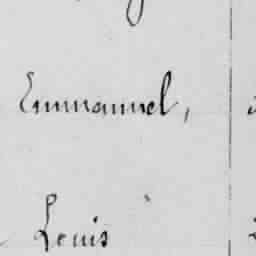 Emmanuel,
Louis